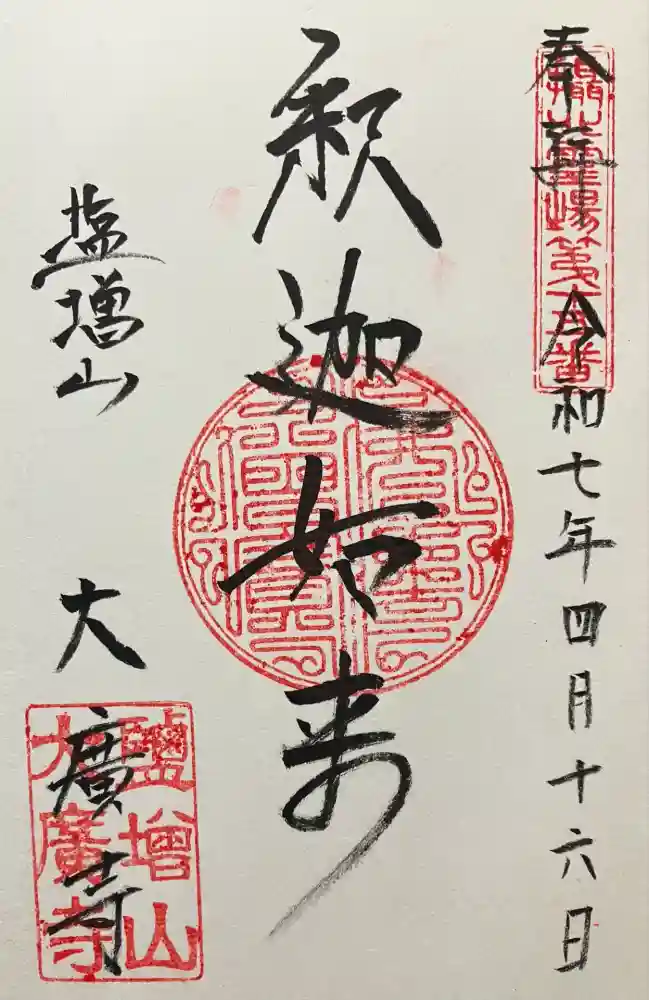 奉拝 令和七年四月十六日
釈迦如来
塩増山
大廣寺
鹽増山
大廣寺